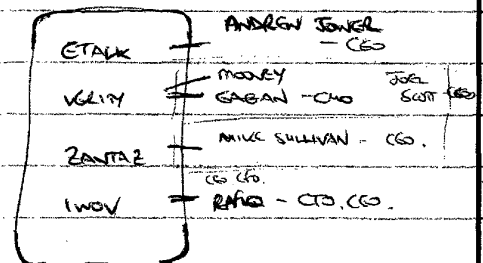 ANDREW JOINER
ETALK - CEO
MOONEY JOEL
VERITY GAGAN - CMO SCOTT - CEO
MIKE SULLIVAN - CEO.
ZANTAZ
CEO CFO.
IWOV RAFIQ - CTO, CEO.